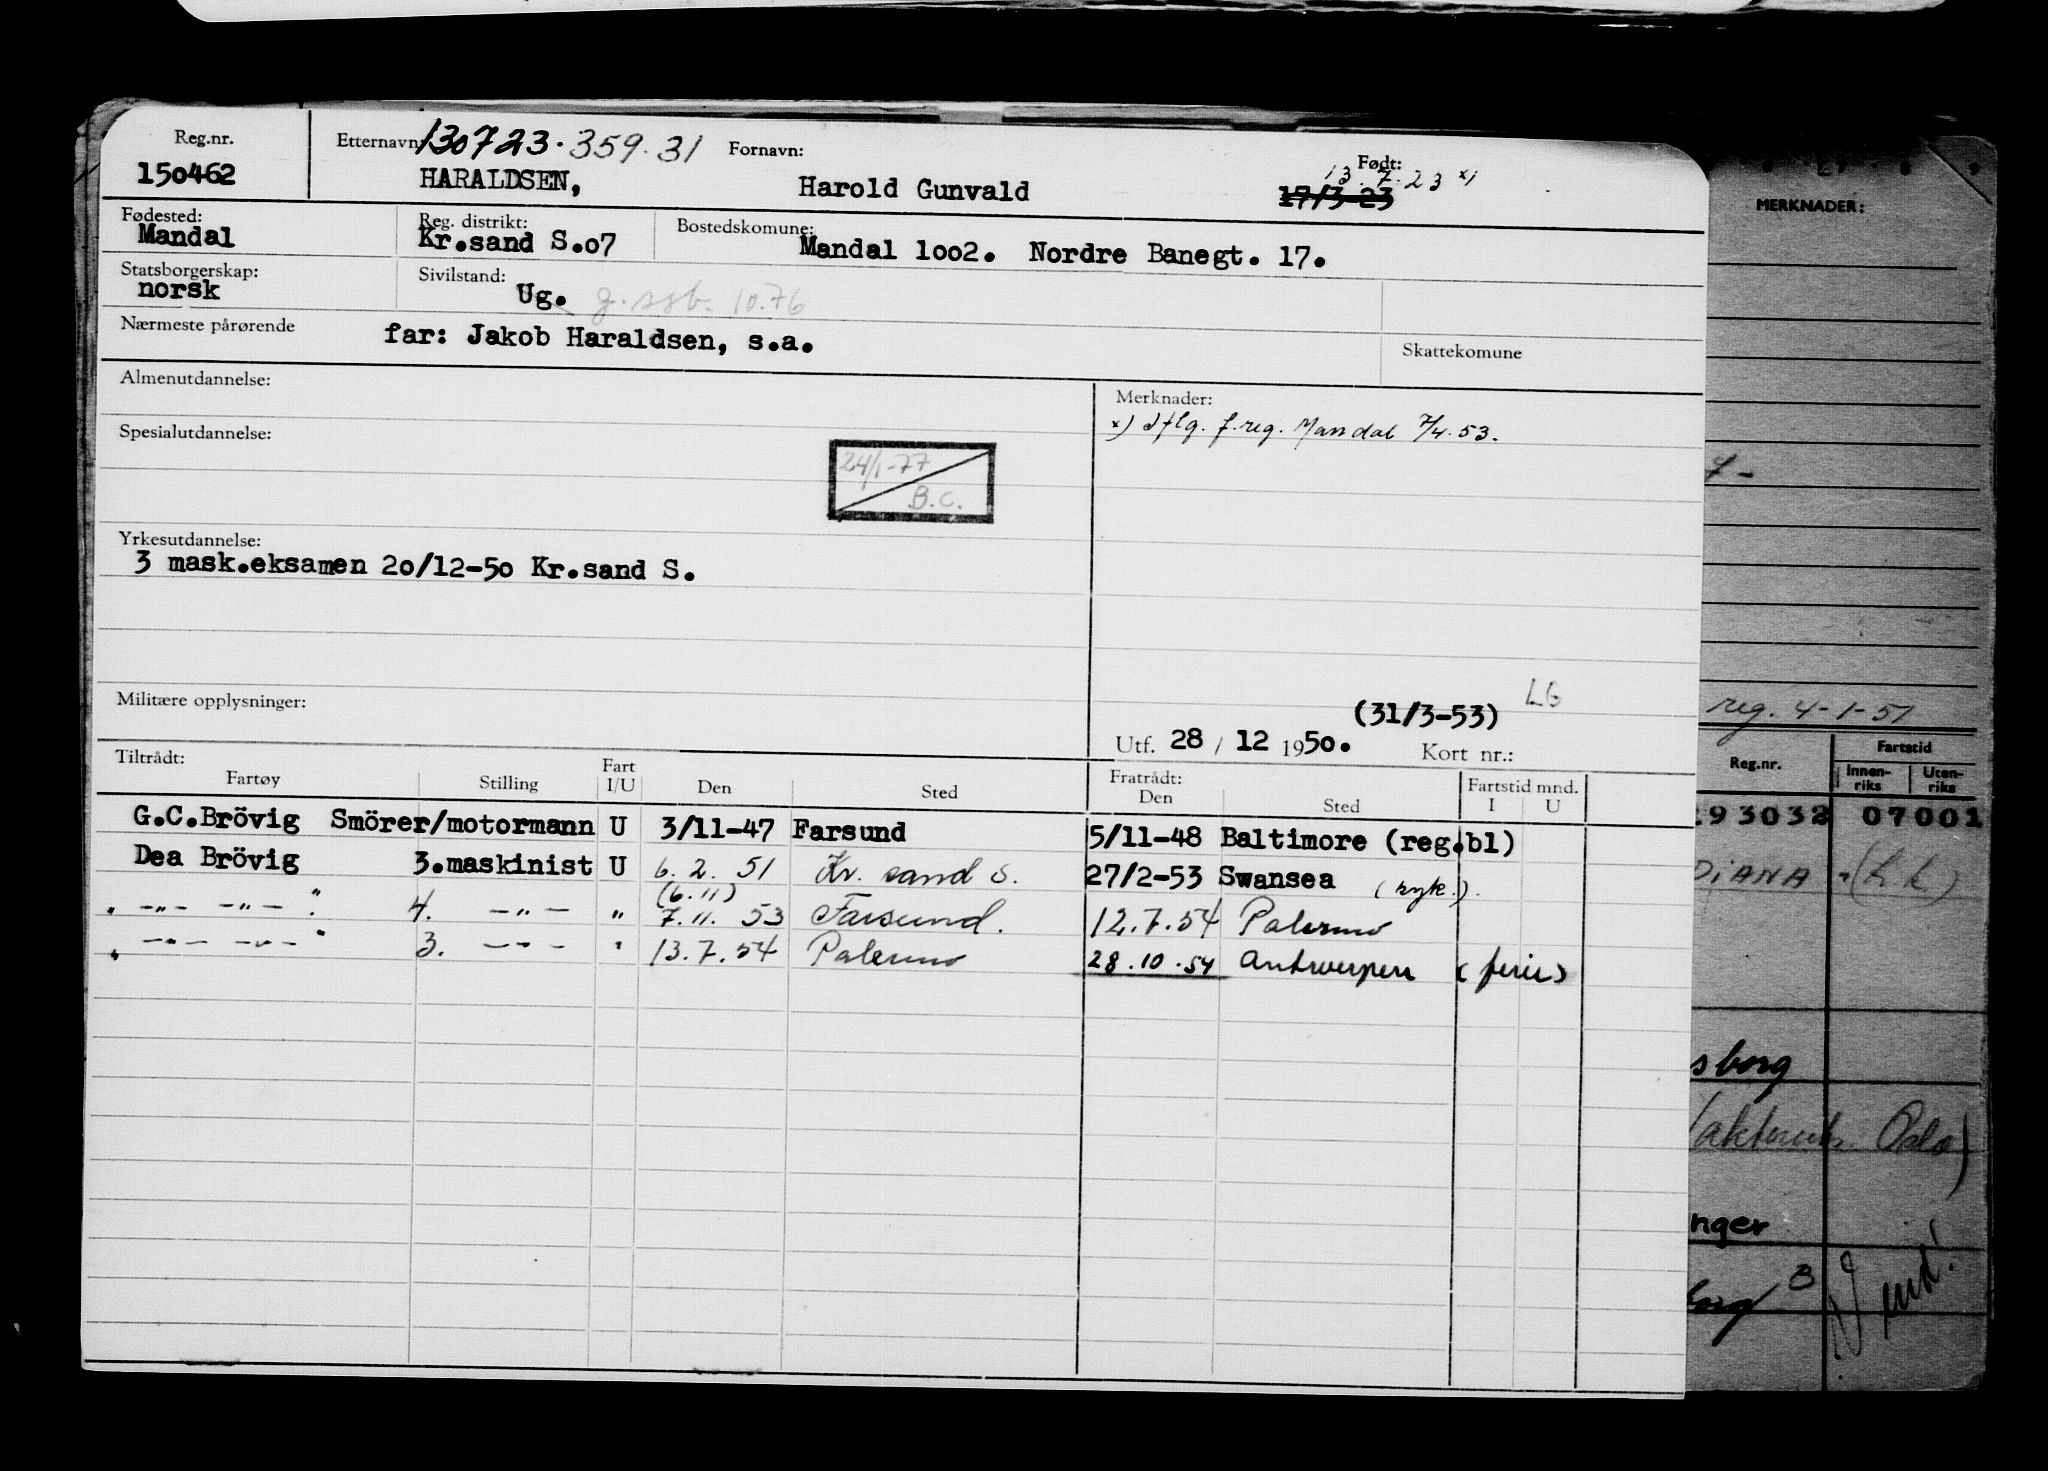 Reg.nr. Etternavn: 130723.359.31 Fornavn: Født:
150462 HARALDSEN, Harold Gunvald 13.7.23 x)
17/3-23
Fødested: Reg. distrikt: Bostedskomune:
Mandal Kr.sand S.o7 Mandal 1oo2. Nordre Banegt. 17.
Statsborgerskap: Sivilstand:
norsk Ug. g. 10.76
Nærmeste pårørende far: Jakob Haraldsen, s.a. Skattekomune
Almenutdannelse: Merknader:
x) Iflg. f.reg. Mandal 7/4.53.
Spesialutdannelse:
24/1-77
B.C.
Yrkesutdannelse:
3 mask.eksamen 2o/12-5o Kr.sand S.
Militære opplysninger:
(31/3-53) LG
Utf. 28 / 12 195o. Kort nr.:
Tiltrådt: Fratrådt:
Fartøy Stilling Fart I/U Den Sted Den Sted Fartstid mnd. I U
G.C.Brövig Smörer/motormann U 3/11-47 Farsund 5/11-48 Baltimore (reg.bl)
Dea Brövig 3.maskinist U 6.2.51 Kr. sand S. 27/2-53 Swansea (syk.).
(6.11)
" -"- -"- " 4. -"- " 7.11.53 Farsund. 12.7.54 Palermo
" -"- -"- " 3. -"- " 13.7.54 Palermo 28.10.54 Antwerpen (ferie)
MERKNADER:
7-
reg. 4-1-51
Reg.nr. Fartstid
Innen-riks Uten-riks
293032 07001
DIANA
sborg
Oslo)
nger
borg B
Vend!